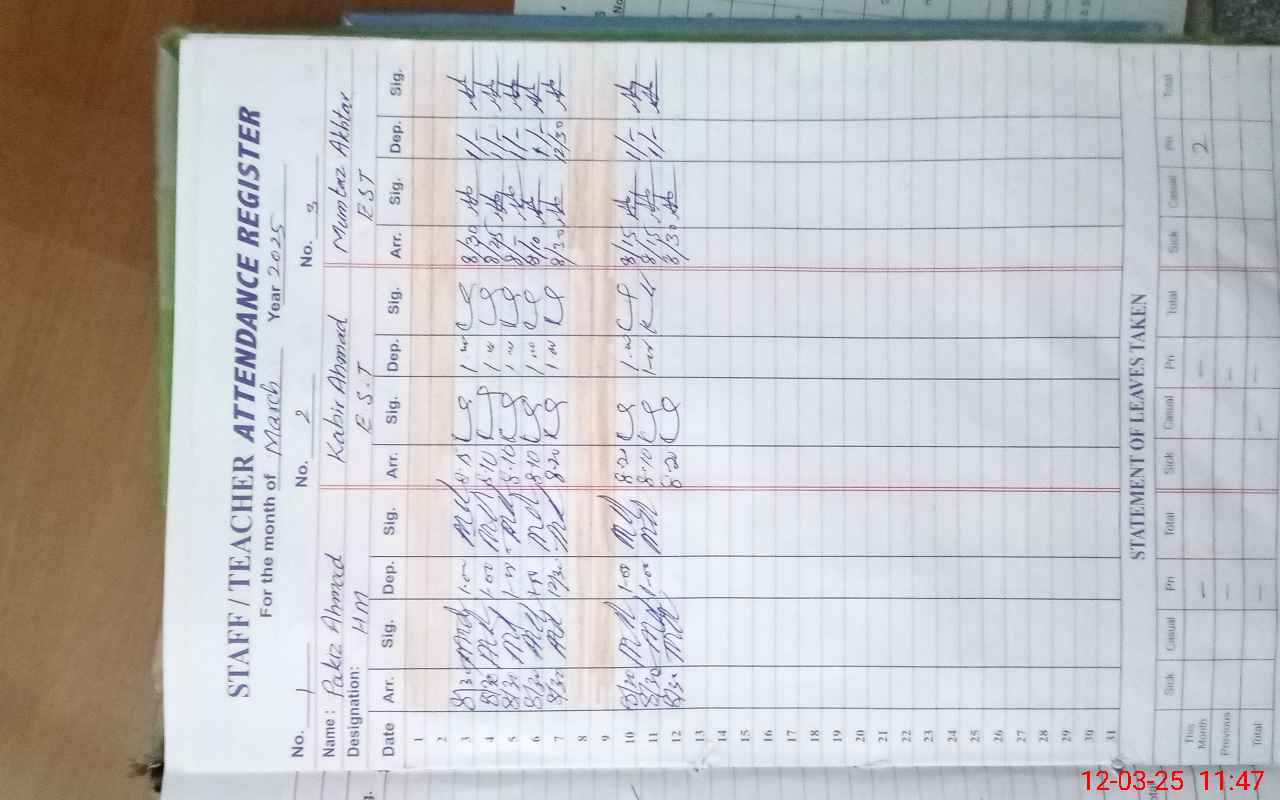 STAFF / TEACHER ATTENDANCE REGISTER
For the month of March Year 2025
No. 1 No. 2 No. 3
Name : Pakiz Ahmad Kabir Ahmad Mumtaz Akhtar
Designation: HM E.S.T EST
Date Arr. Sig. Dep. Sig. Arr. Sig. Dep. Sig. Arr. Sig. Dep. Sig.
1
2
3 8/30 1.00 8.15 1.00 8/30 1/-
4 8/30 1.00 8.10 1.00 8/25 1/-
5 8/30 1.00 8.10 1.00 8/- 1/-
6 8/30 1.00 8.10 1.00 8/10 1/-
7 8/30 12/30 8.20 1.00 8/30 12/30
8
9
10 8/30 1.00 8.20 1.00 8/15 1/-
11 8/30 1.00 8.10 1.00 8/15 1/-
12 8/30 8.20 8/30
13
14
15
16
17
18
19
20
21
22
23
24
25
26
27
28
29
30
31
STATEMENT OF LEAVES TAKEN
Sick Casual Pri Total Sick Casual Pri Total Sick Casual Pri Total
This Month - - 2
Previous - -
Total - - -
12-03-25 11:47